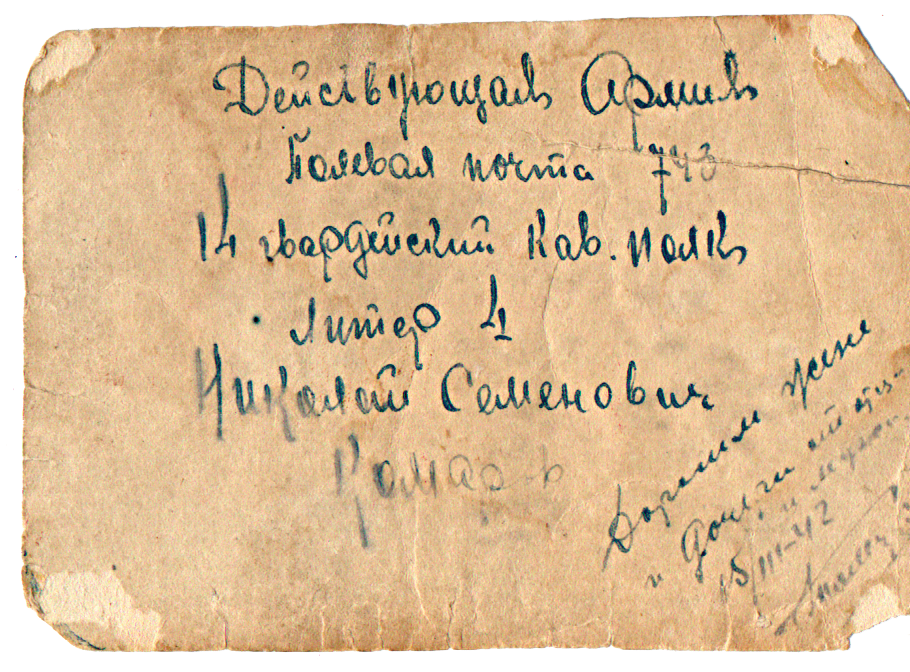 Действующая Армия
Полевая почта 743
14 гвардейский Кав. полк
Литер 4
Николай Семенович
Дорогим жене
и дочери от
и
15/III-42